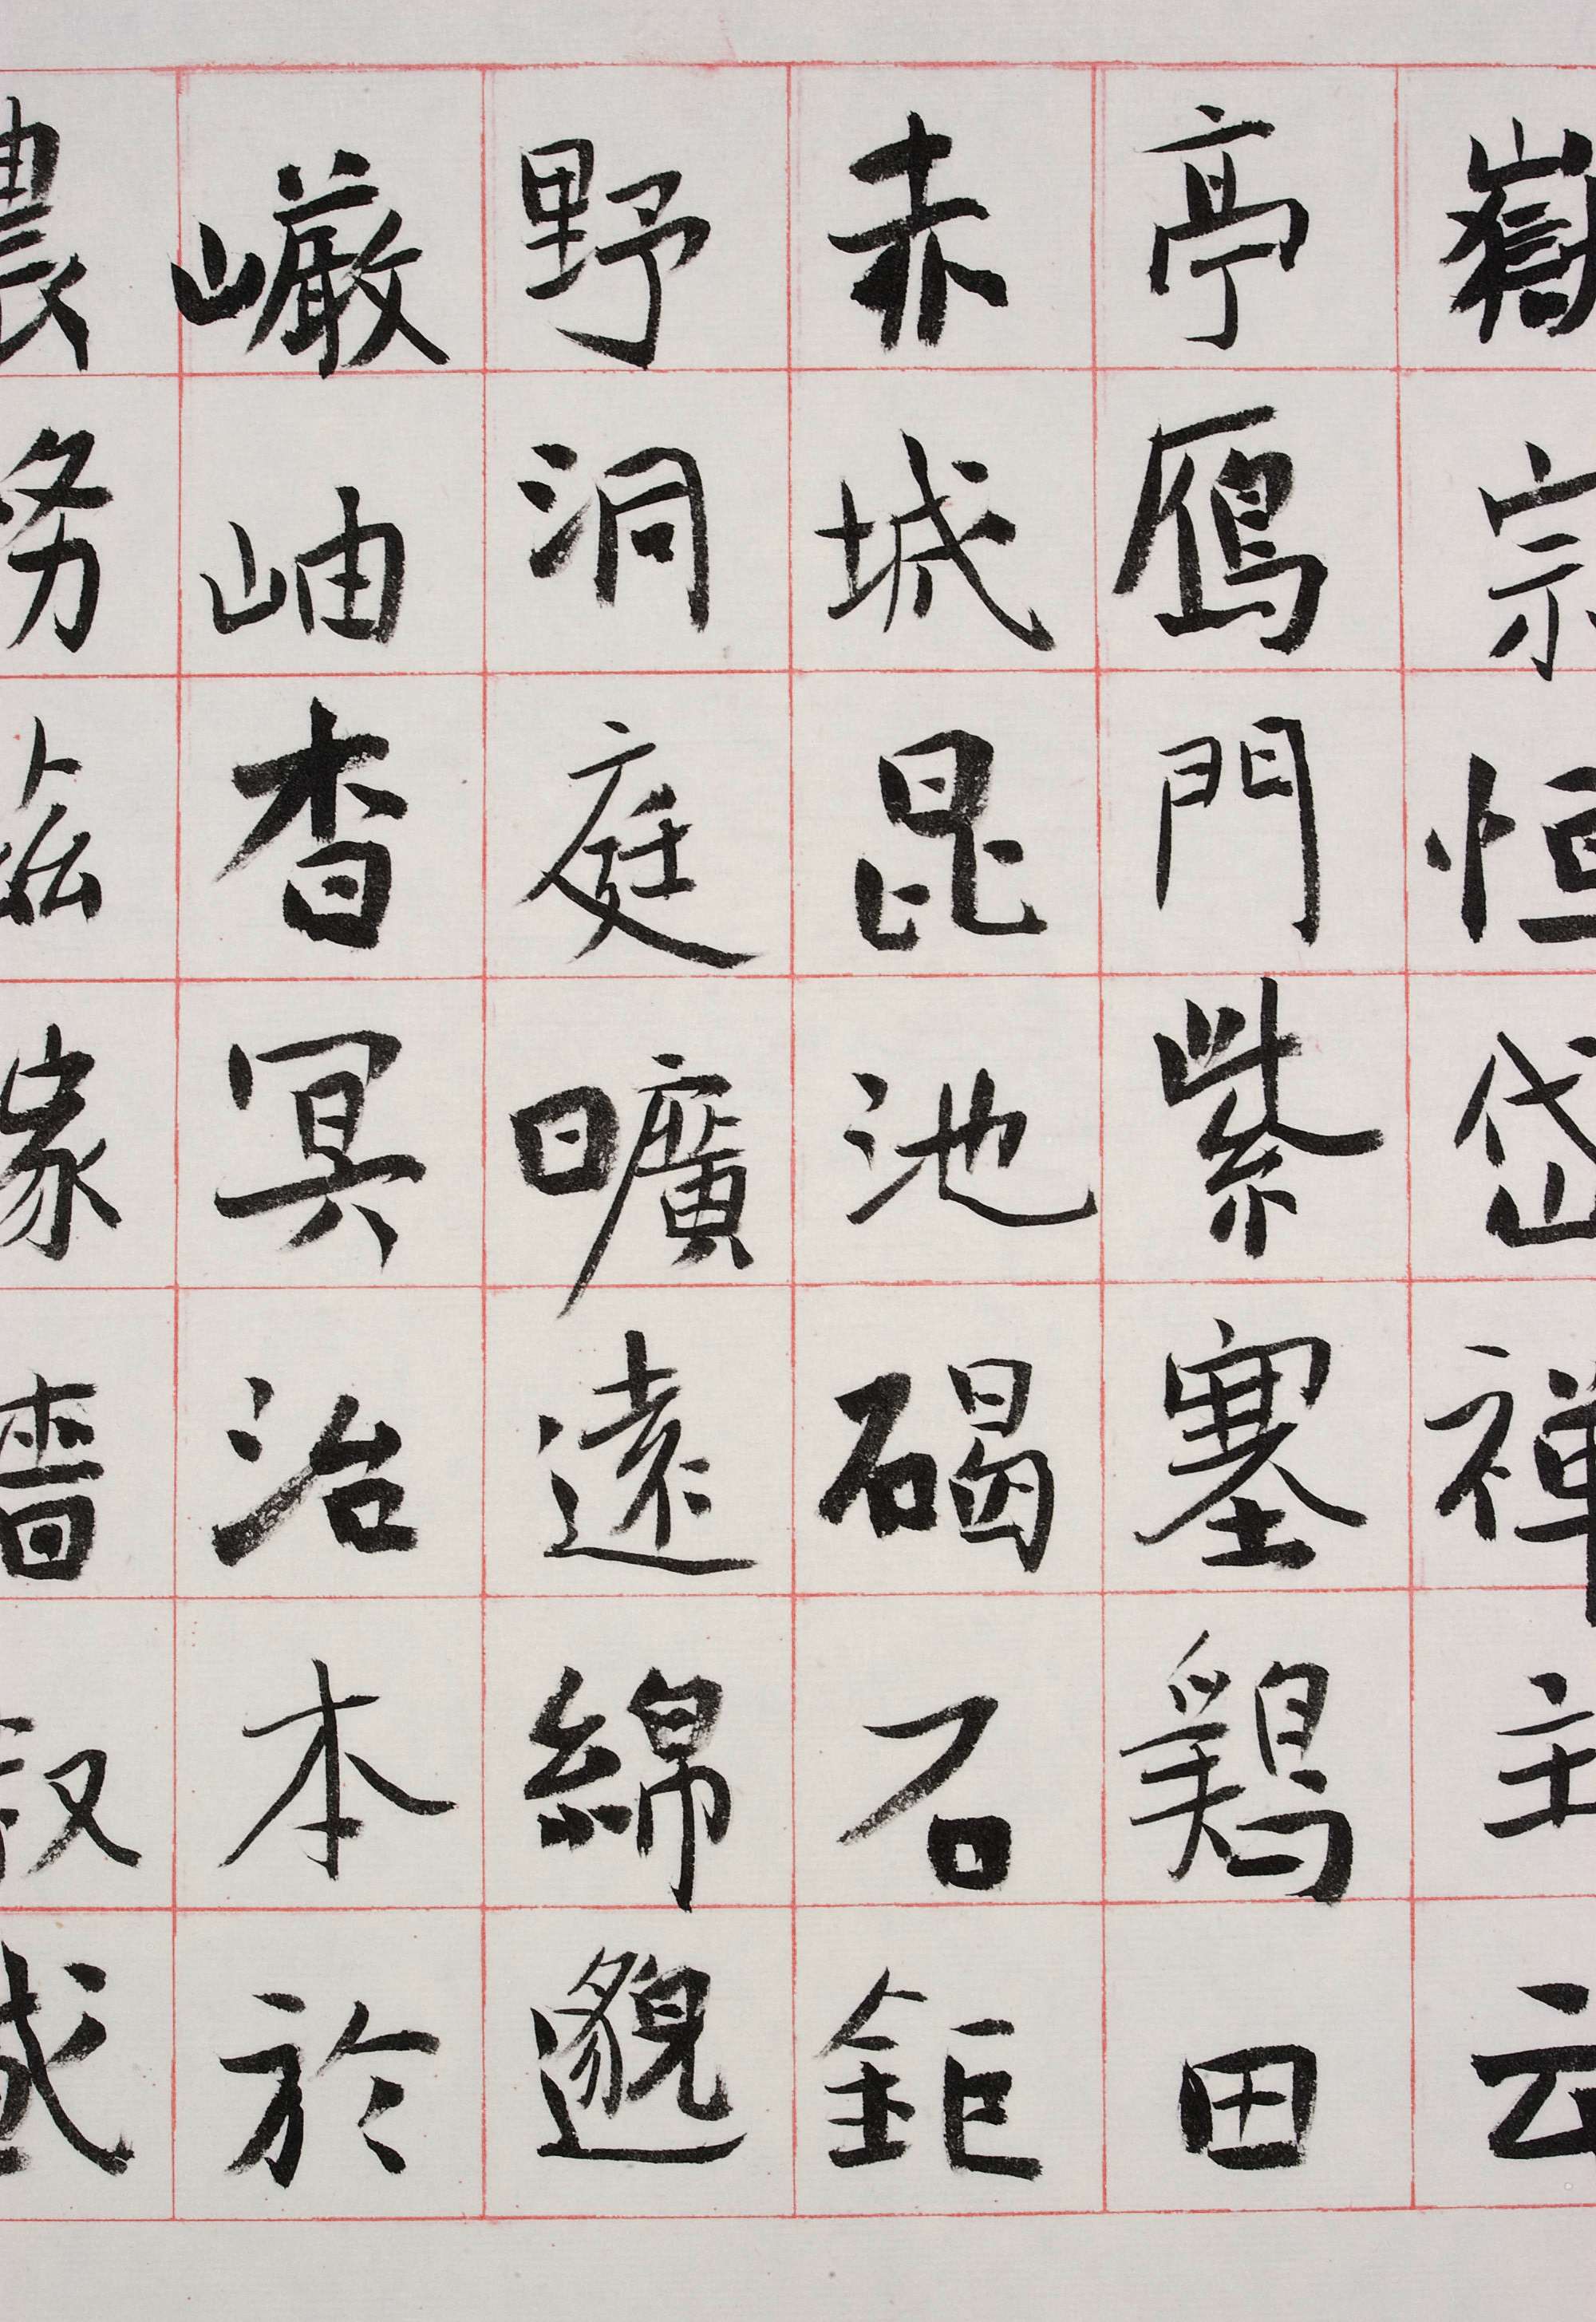 嶽宗恒岱禪主云
亭鴈門紫塞鷄田
赤城昆池碣石鉅
野洞庭曠遠綿邈
巖岫杳冥治本於
農務茲稼穡俶載